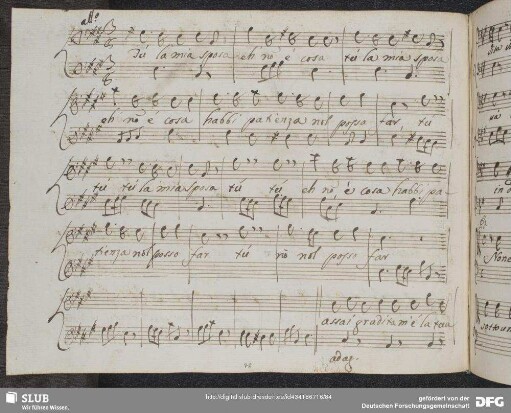 all:º
Tú la mia sposa eh nò è cosa tú la mia sposa
eh nò è cosa habbi patienza nol posso far tú
tú tú la mia sposa tú tú eh nò è cosa habbi pa-
tienza nol posso far tú nò nol posso far
assai gradita m'è la tua
adag.
SLUB
Wir führen Wissen.
http://digital.slub-dresden.de/id434186716/84
gefördert von der
Deutschen Forschungsgemeinschaft
DFG